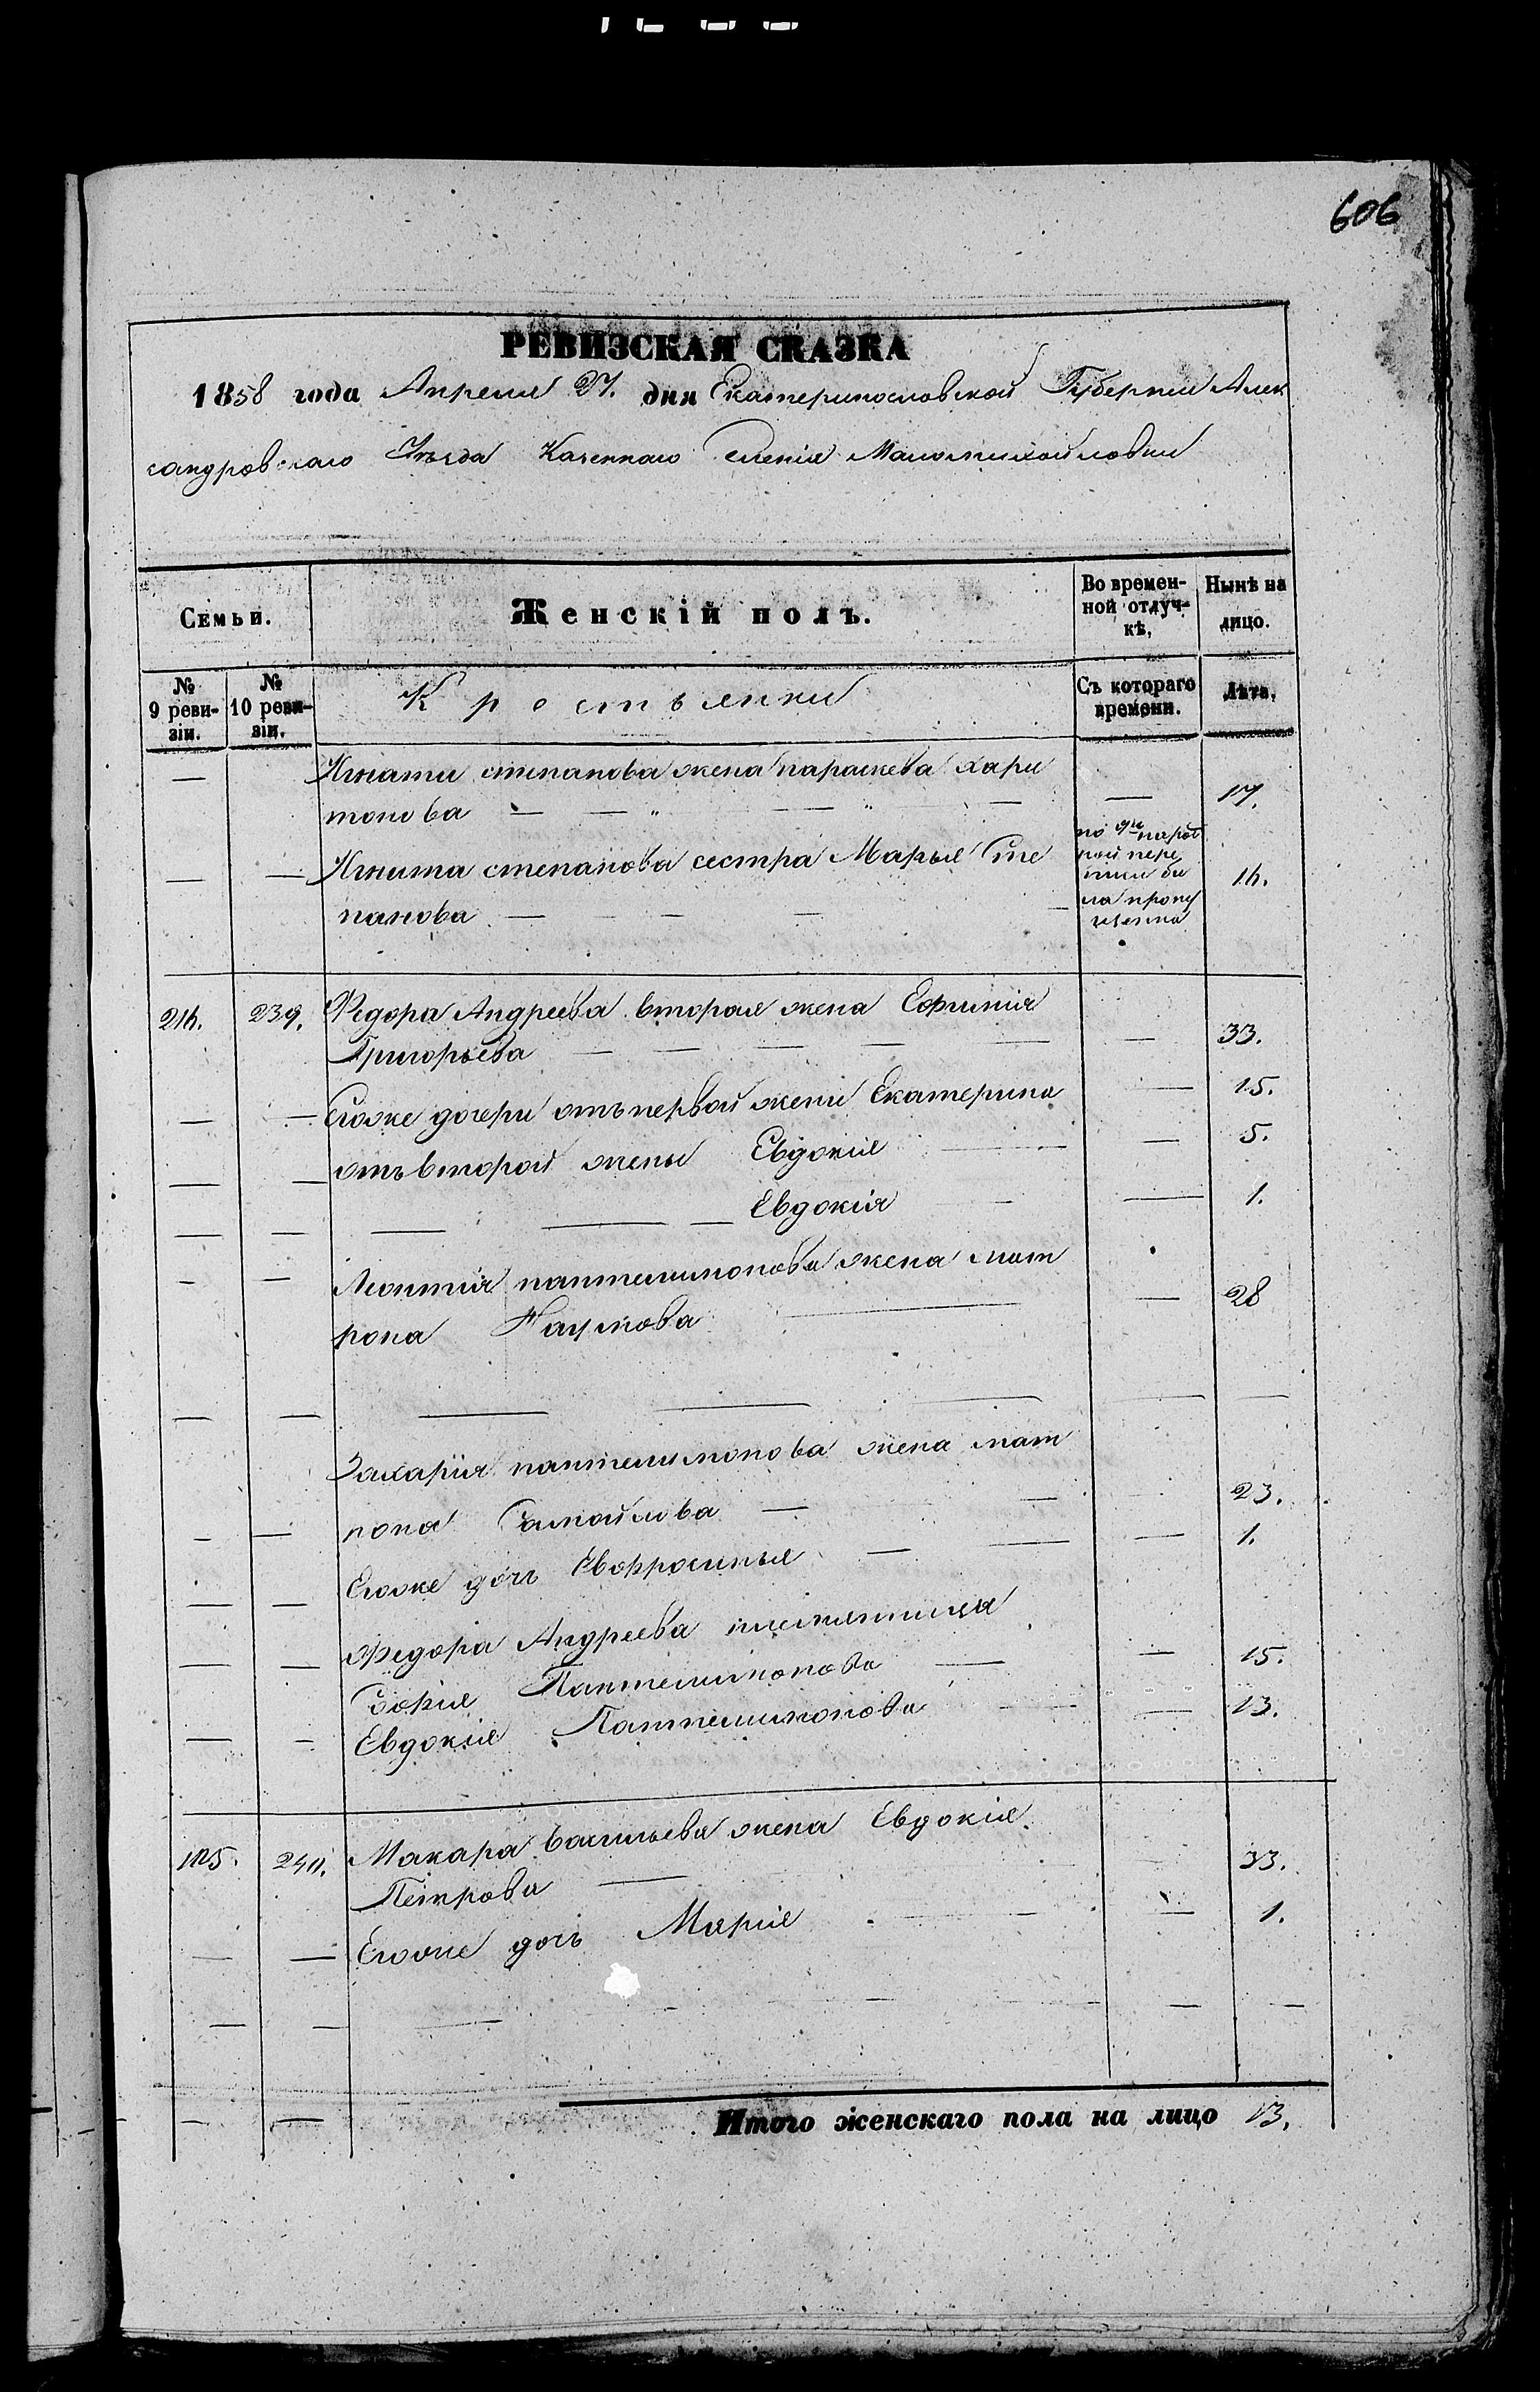 606
РЕВИЗСКАЯ СКАЗКА
1858 года Апреля 27. дня Екатеринославской Губернии Алек
сандровскаго Уѣзда Казеннаго Селенія Маломихайловки
Семьи.
Женскій полъ.
Во времен-
ной отлуч-
кѣ,
Нынѣ на
лицо.
№
9 реви-
зіи.
№
10 реви-
зіи.
Крестьянки
Съ котораго
времени.
Лѣта.
Игната степанова жена параскева хари
тонова — — — — 17.
— — Игната степанова сестра Марья Сте
панова — — — 16.
по
пере
ла пропу
щенна
214. 239. Федора Андреева вторая жена Ефимія
Григорьева — — — — — — 33.
— — Егоже дочери отъ первой жени Екатерина — 15.
— — отъ второй жены Евдокія — — 5.
— — — — — Евдокія — — 1.
— — Леонтія пантелимонова жена мат
рона Наумова — — 28
— — — — — — —
Захарія пантелимонова жена мат
— — рона Самойлова — — 23.
— — Егоже дочь Евфросинья — — — 1.
— — Федора Андреева племянница
Софія Пантелимонова — — 15.
— — Евдокія Пантелимонова — — 13.
240. Макара васильева жена Евдокія
Петрова — — 33.
— — Егоже дочь Марія — — 1.
— — — — — — —
— — Итого женскаго пола на лицо 13.